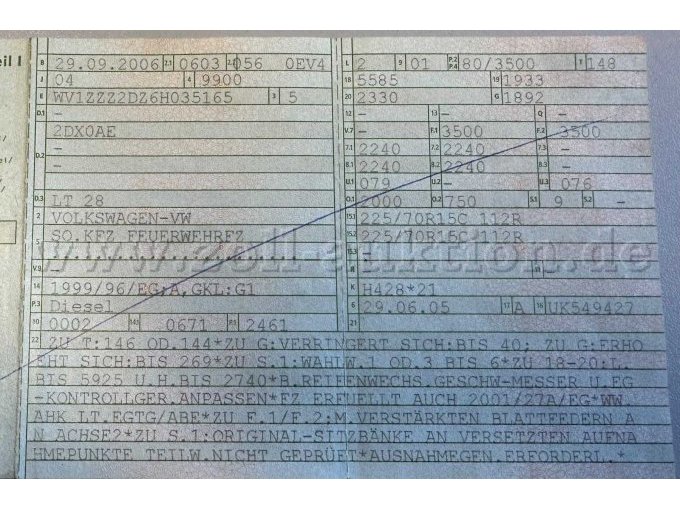 eil I
B 29.09.2006 2.1 0603 056 0EV4 L 2 9 01 P.2 P.4 80/3500 T 148
J 04 4 9900 18 5585 19 1933
E WV1ZZZ2DZ6H035165 3 5 20 2330 G 1892
D.1 - 12 - 13 - Q -
2DX0AE V.7 - F.1 3500 F.2 3500
D.2 - 7.1 2240 7.2 2240 7.3 -
- 8.1 2240 8.2 2240 8.3 -
U.1 079 U.2 - U.3 076
D.3 LT 28 O.1 2000 O.2 750 S.1 9 S.2 -
2 VOLKSWAGEN-VW 15.1 225/70R15C 112R
5 SO.KFZ FEUERWEHRFZ 15.2 225/70R15C 112R
- 15.3 -
www.zoll-auktion.de
V.9 R 11
14 1999/96/EG;A,GKL:G1 K H428*21
P.3 Diesel 6 29.06.05 17 A 16 UK549427
10 0002 14.1 0671 P.1 2461 21
22 ZU T:146 OD.144*ZU G:VERRINGERT SICH:BIS 40; ZU G:ERHO
EHT SICH:BIS 269*ZU S.1:WAHLW.1 OD.3 BIS 6*ZU 18-20:L.
BIS 5925 U.H.BIS 2740*B.REIFENWECHS.GESCHW-MESSER U.EG
-KONTROLLGER.ANPASSEN*FZ ERFUELLT AUCH 2001/27A/EG*WW
AHK LT.EGTG/ABE*ZU F.1/F.2:M.VERSTÄRKTEN BLATTFEDERN A
N ACHSE2*ZU S.1:ORIGINAL-SITZBÄNKE AN VERSETZTEN AUFNA
HMEPUNKTE TEILW.NICHT GEPRÜFT*AUSNAHMEGEN.ERFORDERL.*